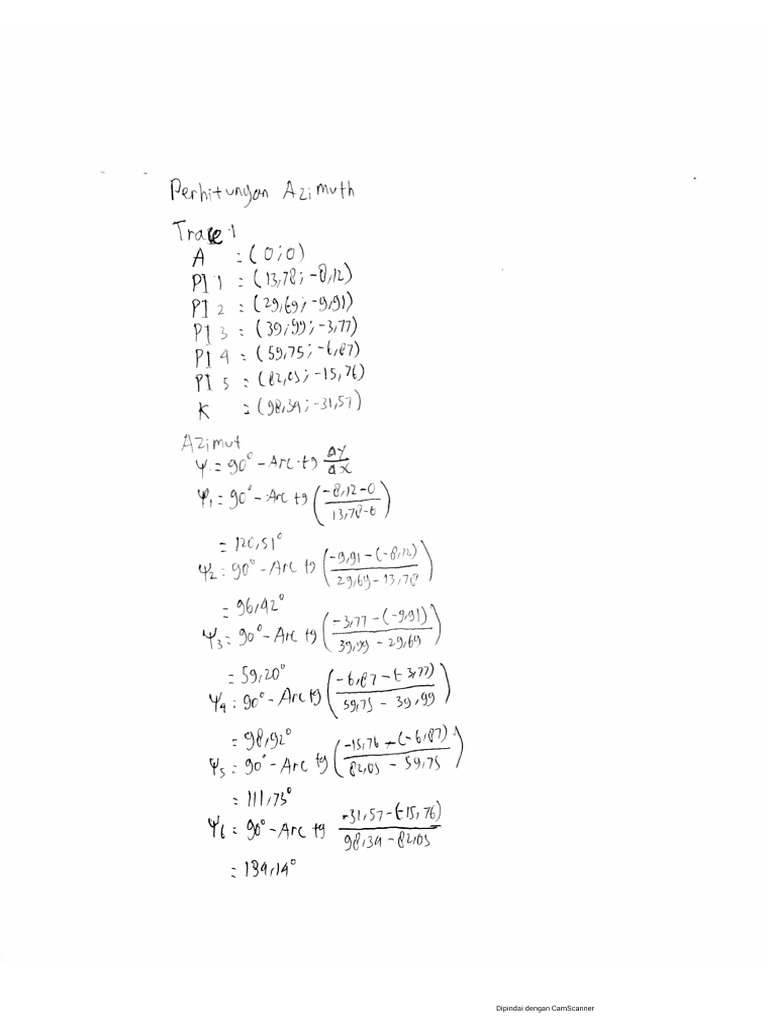 Perhitungan Azimuth
Trace 1
A : (0;0)
PI 1 : (13,78; -8,12)
PI 2 : (29,69; -9,91)
PI 3 : (39,99; -3,77)
PI 4 : (59,75; -6,87)
PI 5 : (82,05; -15,76)
K : (98,34; -31,57)
Azimut
Ψ = 90° - Arc tg Δy/Δx
Ψ1 = 90° - Arc tg (-8,12-0 / 13,78-0)
= 120,51°
Ψ2 : 90° - Arc tg (-9,91-(-8,12) / 29,69-13,78)
= 96,42°
Ψ3 = 90° - Arc tg (-3,77-(-9,91) / 39,99-29,69)
= 59,20°
Ψ4 = 90° - Arc tg (-6,87-(-3,77) / 59,75-39,99)
= 98,92°
Ψ5 = 90° - Arc tg (-15,76-(-6,87) / 82,05-59,75)
= 111,73°
Ψ6 = 90° - Arc tg -31,57-(-15,76) / 98,34-82,05
= 134,14°
Dipindai dengan CamScanner